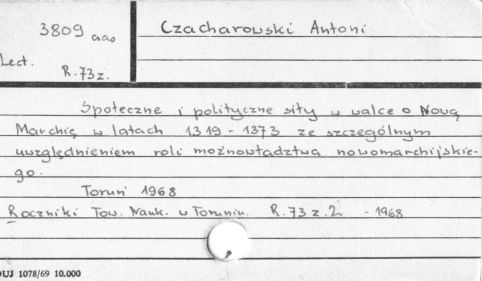 3809 aas
Czacharowski Antoni
Lect.
R.73 z.
Społeczne i polityczne siły w walce o Nową
Marchię w latach 1319-1373 ze szczególnym
uwzględnieniem roli możnowładztwa nowomarchijskie-
go.
Toruń 1968
Roczniki Tow. Nauk. w Toruniu. R.73 z.2 - 1968
DUJ 1078/69 10.000